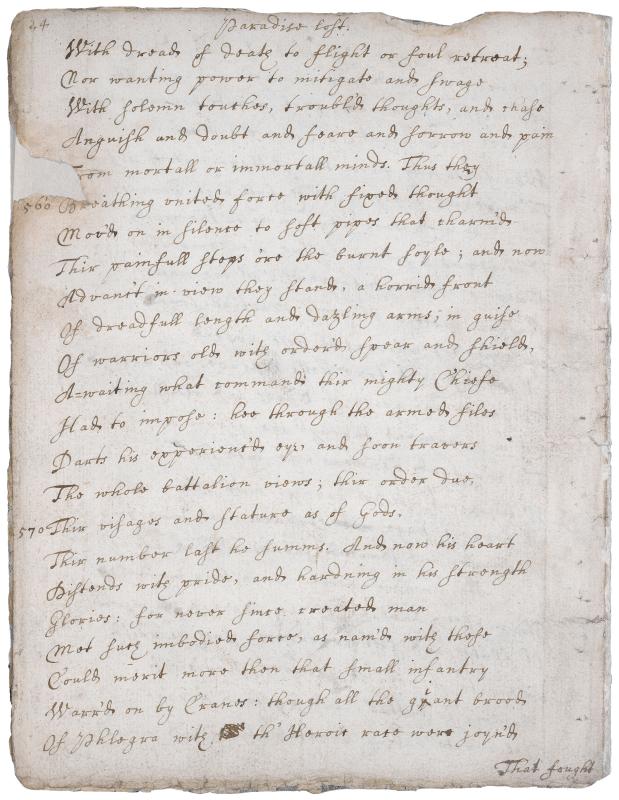 24
Paradise lost.
With dread of death to flight or foul retreat;
Nor wanting power to mitigate and swage
With solemn touches, troubl'd thoughts, and chase
Anguish and doubt and feare and sorrow and pain
From mortall or immortall minds. Thus they
560 Breathing united force with fixed thought
Mov'd on in silence to soft pipes that charm'd
Thir painfull steps o're the burnt soyle; and now
Advanc't in view they stand, a horrid front
Of dreadfull length and dazling arms, in guise
Of warriors old with order'd spear and shield,
A=waiting what command thir mighty Chiefe
Had to impose: hee through the armed files
Darts his experienc'd eye, and soon travers
The whole battalion views; thir order due,
570 Thir visages and stature as of Gods,
Thir number last he summs. And now his heart
Distends with pride, and hardning in his strength
Glories: for never since created man
Met such imbodied force, as nam'd with these
Could merit more then that small infantry
Warr'd on by Cranes: though all the giant brood
Of Phlegra with th' Heroic race were joyn'd
That fought